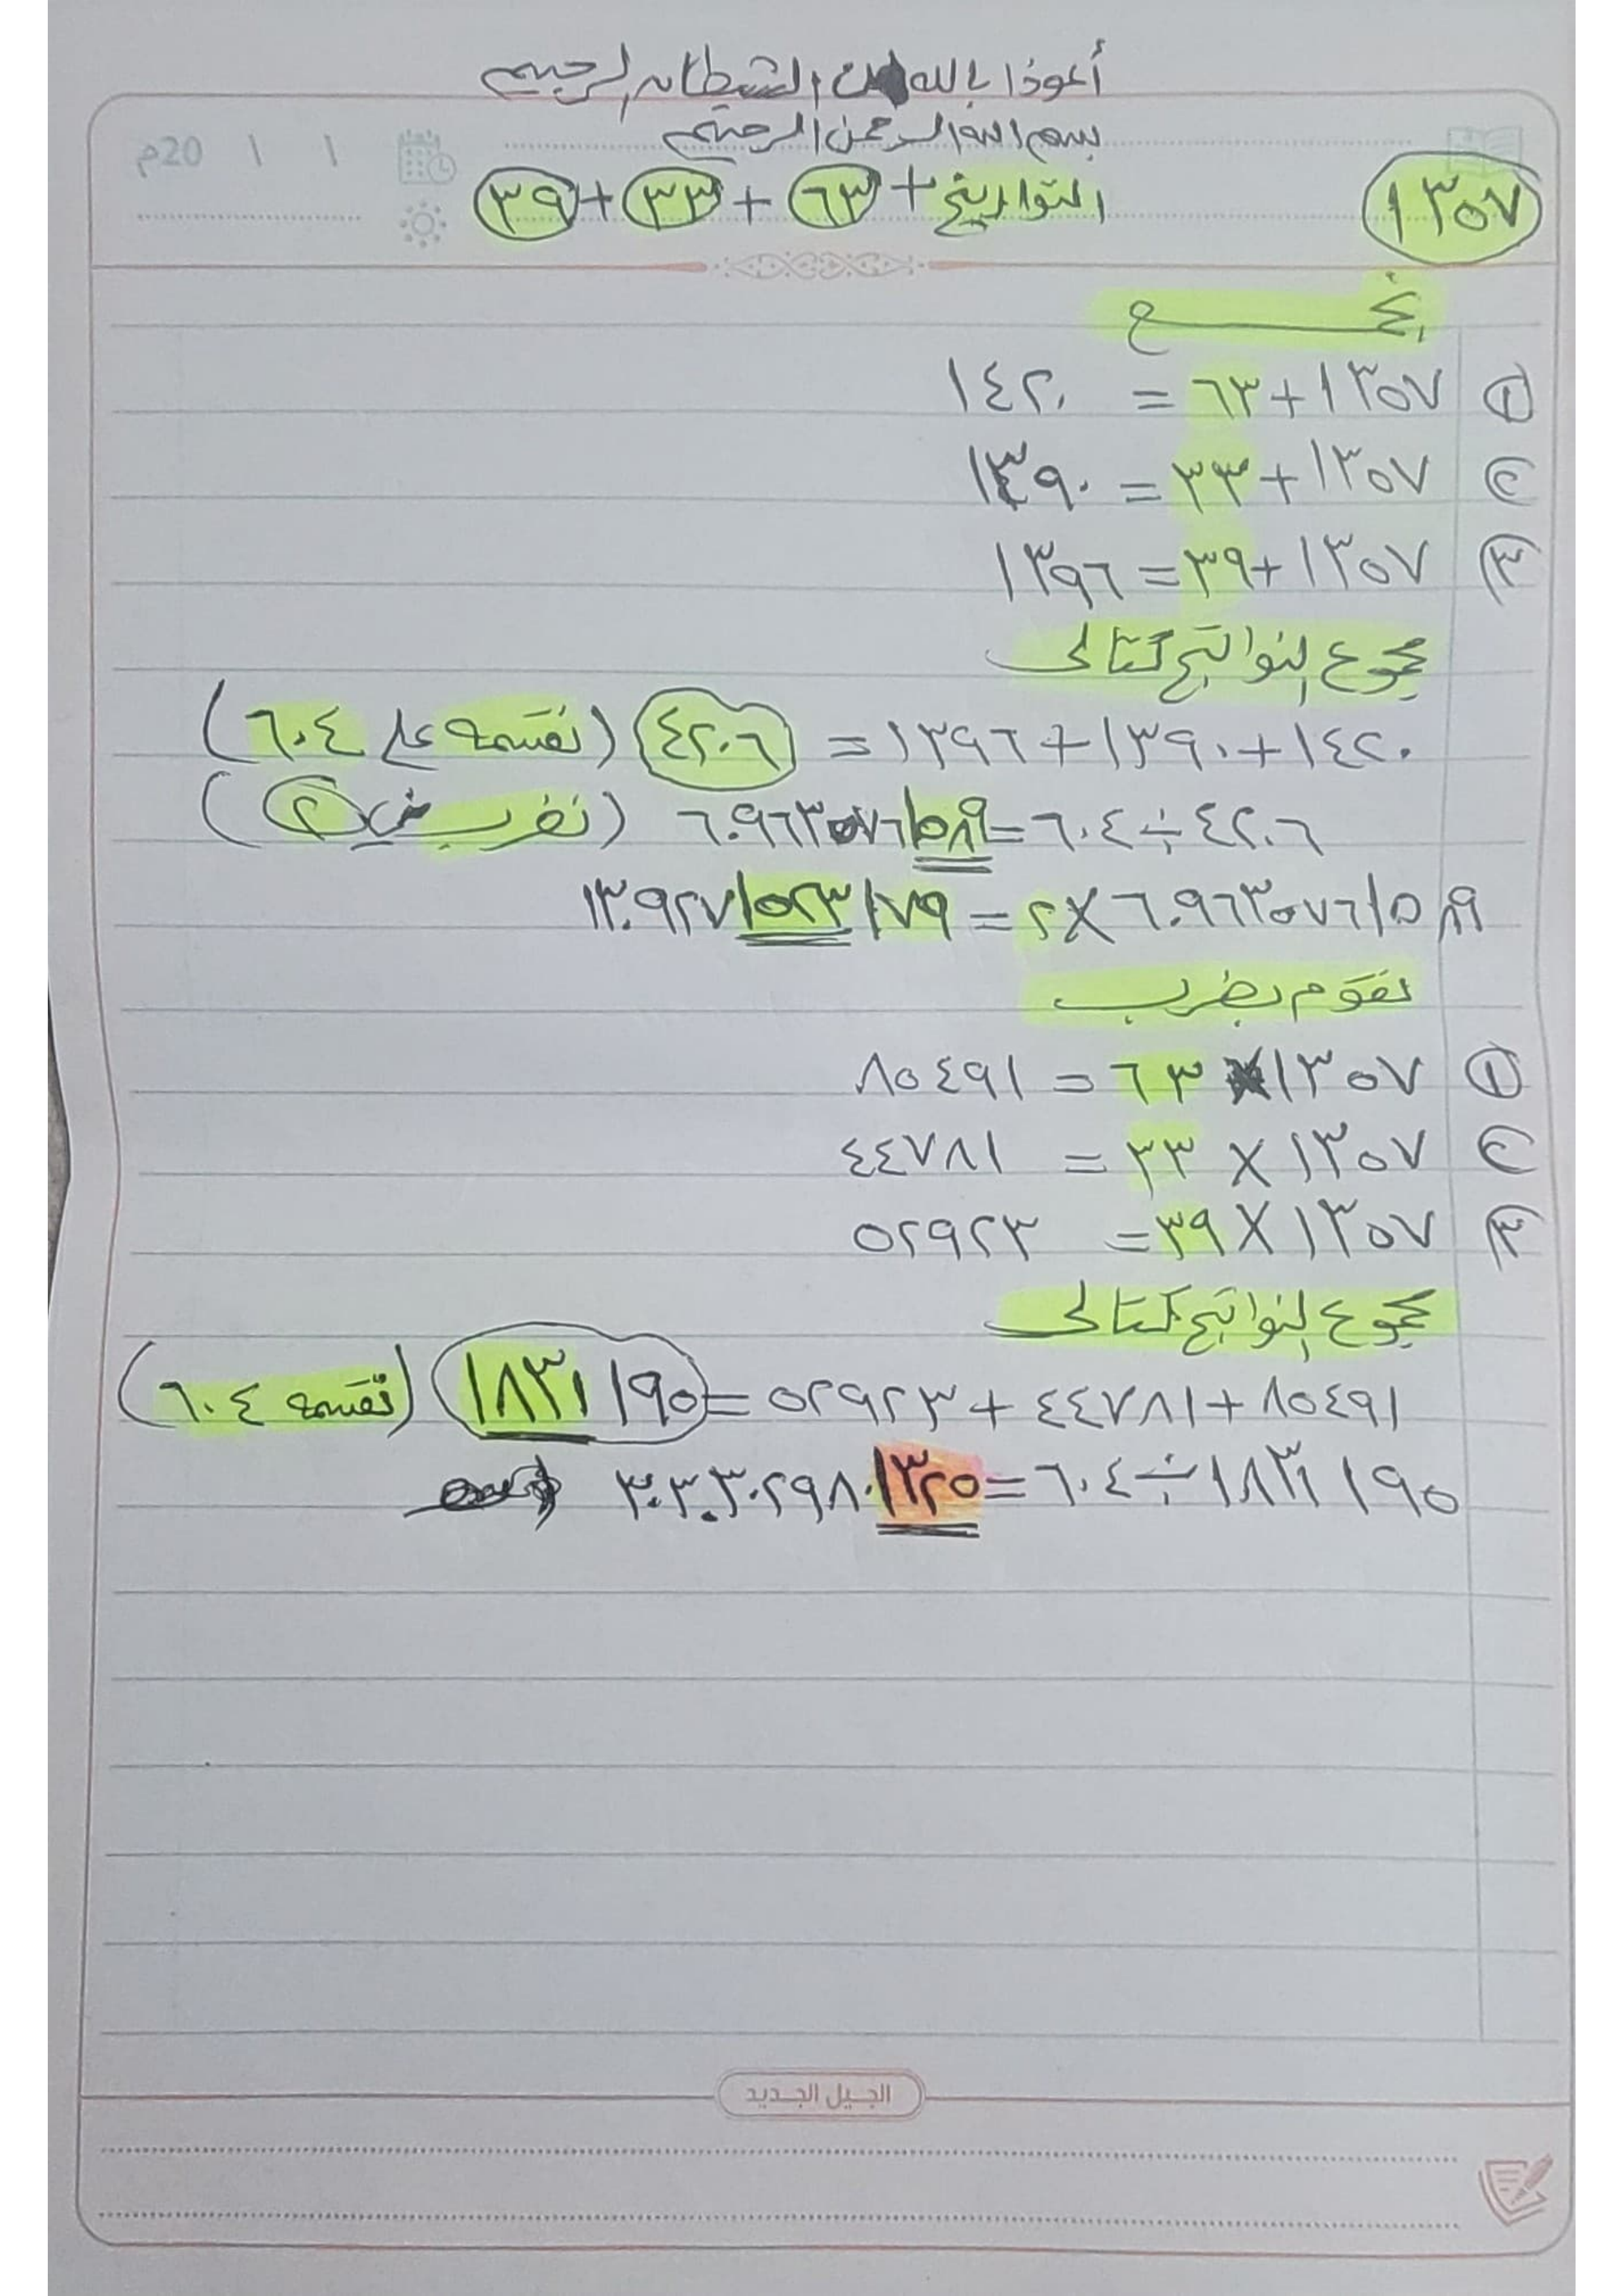 أعوذا بالله من الشيطان الرجيم
بسم الله الرحمن الرحيم
20م / /
١٣٥٧
التواريخ + ٦٣ + ٣٣ + ٣٩
① ١٣٥٧ + ٦٣ = ١٤٢٠
② ١٣٥٧ + ٣٣ = ١٣٩٠
③ ١٣٥٧ + ٣٩ = ١٣٩٦
مجموع النواتج كتالى
١٤٢٠ + ١٣٩٠ + ١٣٩٦ = ٤٢٠٦ (نقسمه على ٦٠٤)
٤٢٠٦ ÷ ٦٠٤ = ٦.٩٦٣٥٧٦١٥٨٩ (نضرب في ②)
٦.٩٦٣٥٧٦١٥٨٩ × ٢ = ١٣.٩٢٧١٥٢٣١٧٩
نقوم بضرب
① ١٣٥٧ × ٦٣ = ٨٥٤٩١
② ١٣٥٧ × ٣٣ = ٤٤٧٨١
③ ١٣٥٧ × ٣٩ = ٥٢٩٢٣
مجموع النواتج كتالى
٨٥٤٩١ + ٤٤٧٨١ + ٥٢٩٢٣ = ١٨٣١٩٥ (نقسمه ٦٠٤)
١٨٣١٩٥ ÷ ٦٠٤ = ٣٠٣.٣٠٢٩٨٠١٣٢٥
الجيل الجديد